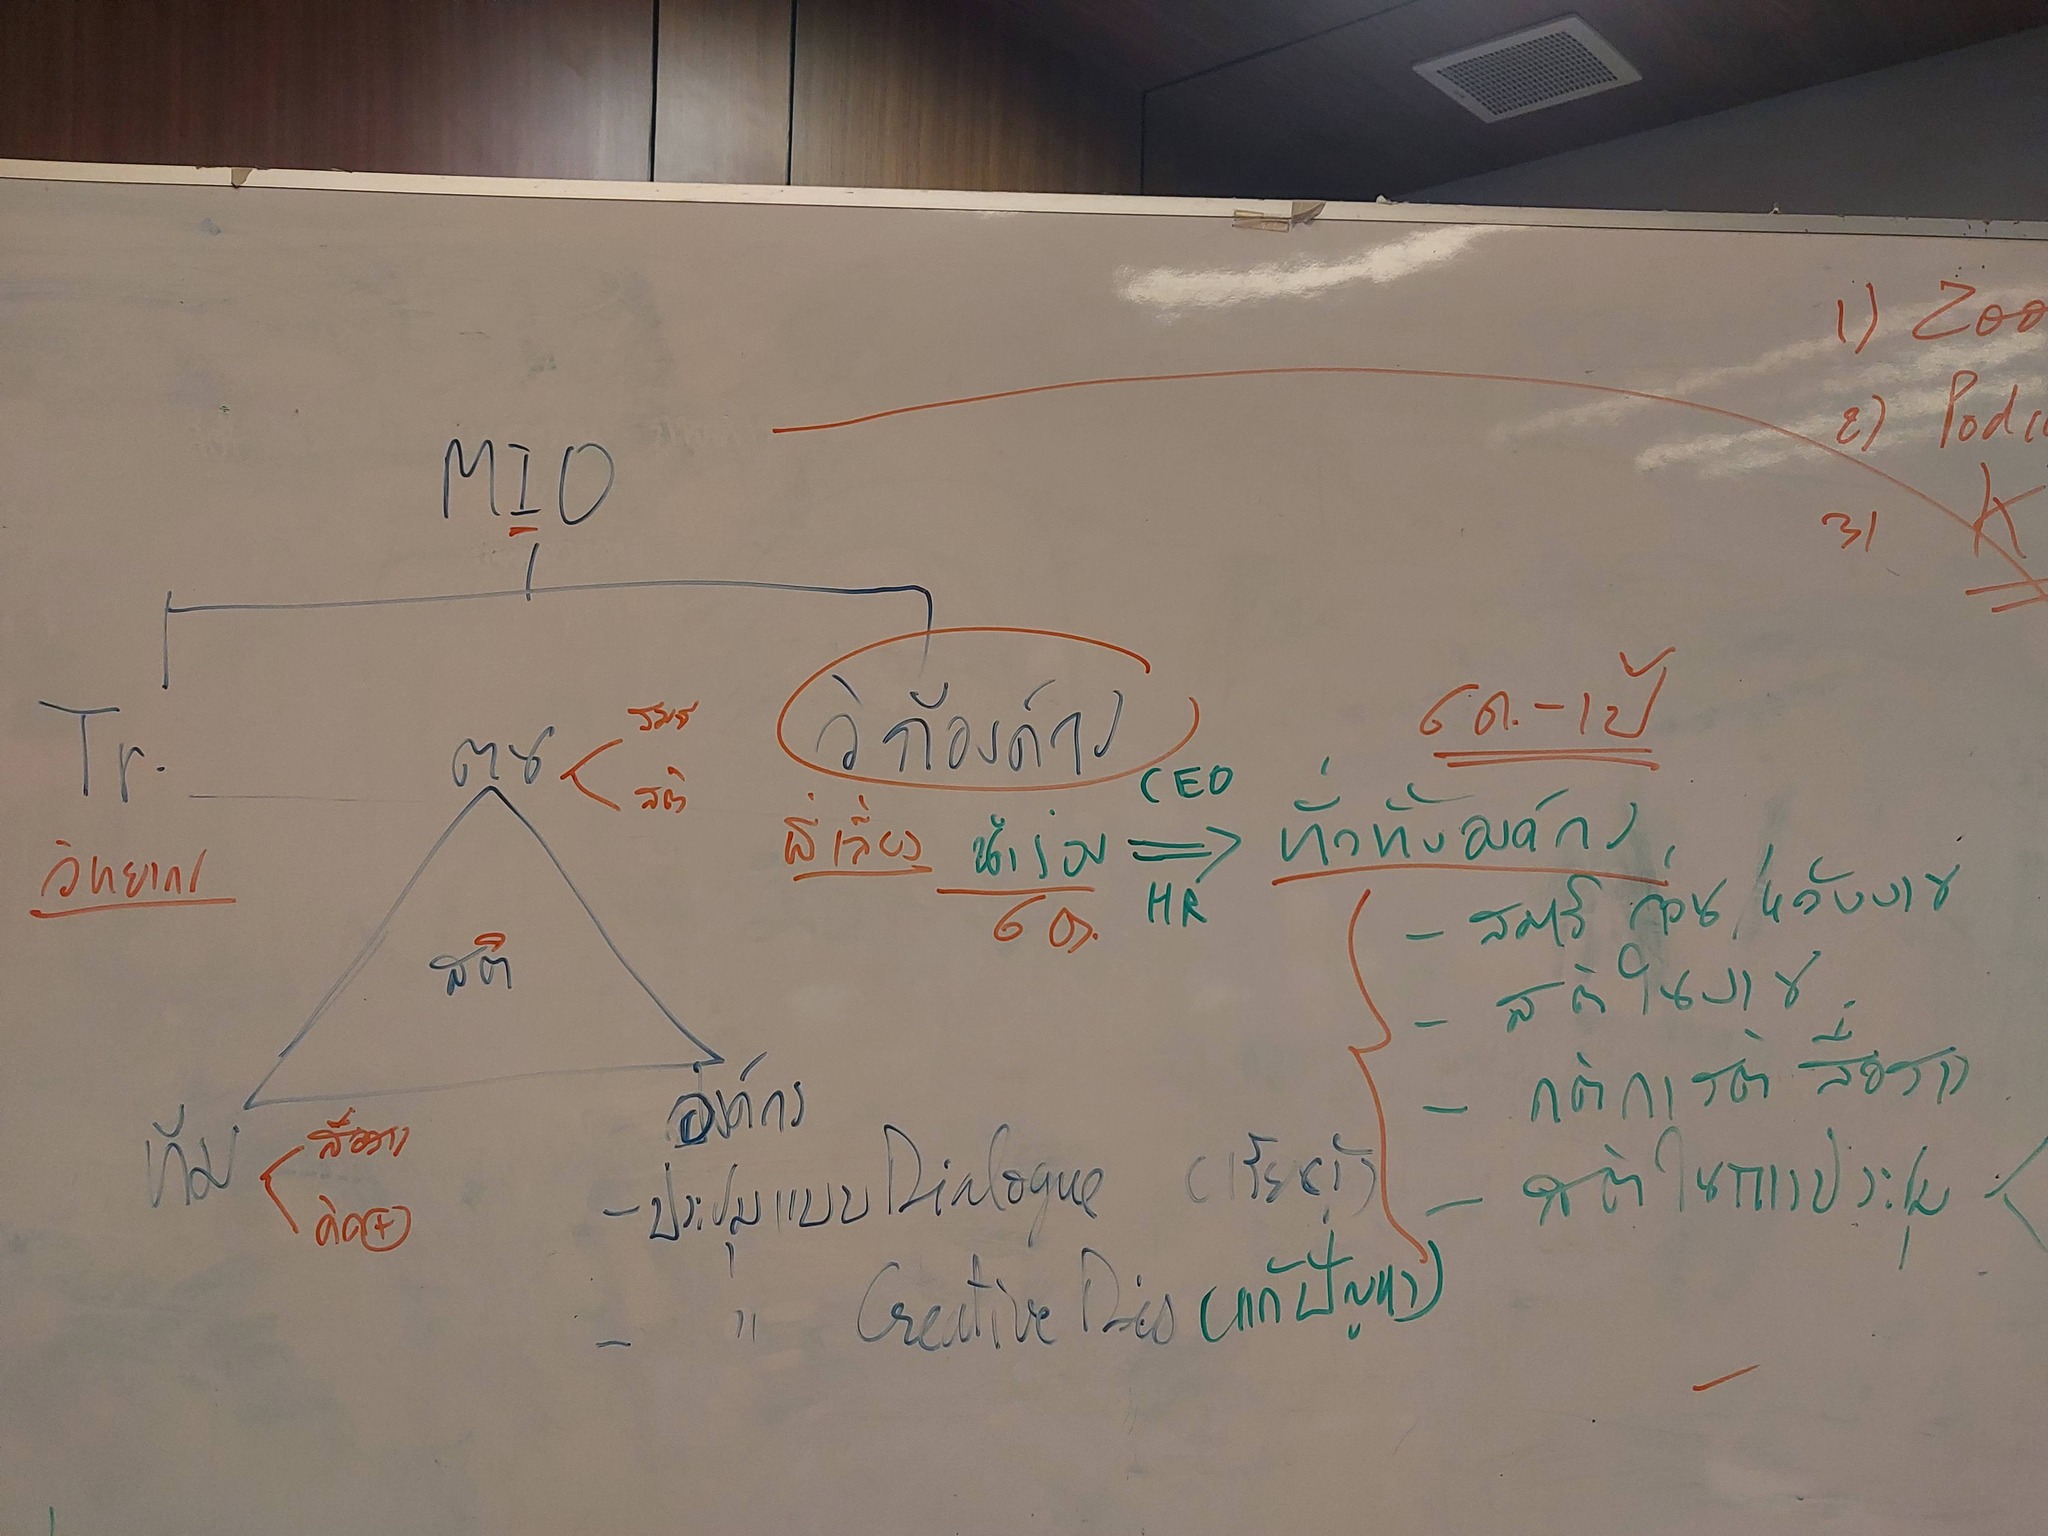 1) Zoo
2) Pod
3) K
MIO
Tr.
วิทยากร
ตน
สติ
วิถีองค์กร
6 ด. - 1 ปี
พี่เลี้ยง นำร่อง
6 ด.
CEO
HR
ทั่วทั้งองค์กร
สติ
ทีม
สื่อสาร
คิด (+)
องค์กร
- ประชุมแบบ Dialogue (เรียนรู้)
- " Creative Dis (แก้ปัญหา)
- สมาธิ ก่อน/หลังงาน
- สติในงาน
- กติกาสติ สื่อสาร
- สติในการประชุม